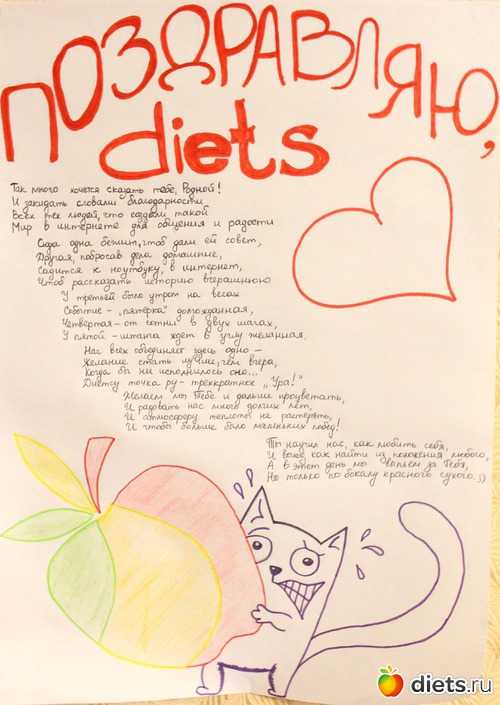 ПОЗДРАВЛЯЮ,
diets
Так много хочется сказать тебе, Родной!
И закидать словами благодарности
Всех тех людей, что создали такой
Мир в интернете для общения и радости
Сюда одна бежит, чтоб дали ей совет,
Другая, побросав дела домашние,
Садится к ноутбуку, в интернет,
Чтоб рассказать историю вчерашнюю
У третьей было утром на весах
Событие – "пятёрка" долгожданная,
Четвёртая – от "сотни" в двух шагах,
У пятой – штанга ждет в углу желанная.
Нас всех объединяет здесь одно –
Желание стать лучше, чем вчера,
Когда бы ни исполнилось оно...
Диетсу точка ру – трехкратное "Ура!"
Желаем мы Тебе и дальше процветать,
И радовать нас много долгих лет,
И атмосферу теплоты не растерять,
И чтобы больше было маленьких побед!
Ты научил нас, как любить себя,
И выход как найти из положения любого,
А в этот день мы выпьем за Тебя,
Но только по бокалу красного сухого.))
diets.ru